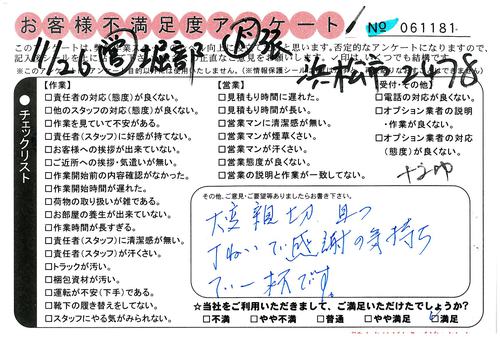 お客様不満足度アンケート!
№ 061181
11/26 営 堀部
浜松市 2478
チェックリスト
【作業】
□責任者の対応(態度)が良くない。
□他のスタッフの対応(態度)が良くない。
□作業を見ていて不安がある。
□責任者(スタッフ)に好感が持てない。
□お客様への挨拶が出来ていない。
□ご近所への挨拶・気遣いが無い。
□作業開始前の内容確認がなかった。
□作業開始時間が遅れた。
□荷物の取り扱いが雑である。
□お部屋の養生が出来ていない。
□作業時間が長すぎる。
□責任者(スタッフ)に清潔感が無い。
□責任者(スタッフ)が汗くさい。
□トラックが汚い。
□梱包資材が汚い。
□運転が不安(下手)である。
□靴下の履き替えをしてない。
□スタッフにやる気がみられない。
【営業】
□見積もり時間に遅れた。
□見積もり時間が長い。
□営業マンに清潔感が無い。
□営業マンが煙草くさい。
□営業マンが汗くさい。
□営業態度が良くない。
□営業の説明と作業が一致してない。
【受付・その他】
□電話の対応が良くない。
□オプション業者の説明
・作業が良くない。
□オプション業者の対応
(態度)が良くない。
その他、ご意見・ご要望等ありましたらお書き下さい。
大変親切 且つ
ていねいで感謝の気持ち
で一杯です。
☆当社をご利用いただきまして、ご満足いただけたでしょうか?
□不満 □やや不満 □普通 □やや満足 □満足